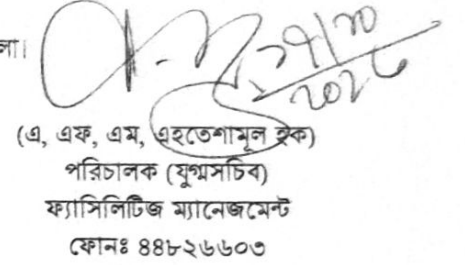 লা।
(এ, এফ, এম, এহতেশামূল হক)
পরিচালক (যুগ্মসচিব)
ফ্যাসিলিটিজ ম্যানেজমেন্ট
ফোনঃ ৪৪৮২৬৬০৩